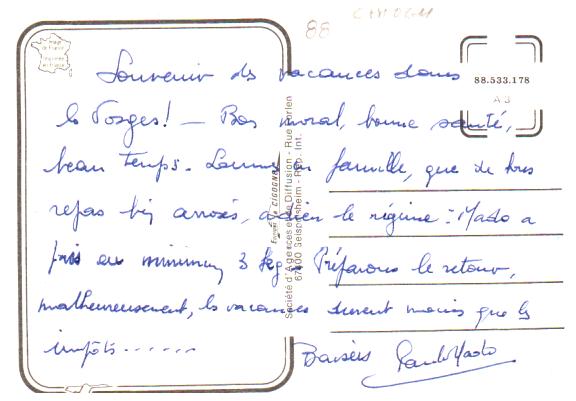 88
Image
de France
88.533.178
A 3
Souvenir des vacances dans
les Vosges! — Bon moral, bonne santé,
beau temps. en famille, que de bons
repas bien arrosés, adieu le régime : Mado a
pris au minimum 3 kg. Préparons le retour,
malheureusement, les vacances durent moins que les
impôts......
Baisers Paul Mado
Société d'Agences et de Diffusion - Rue
67600 Selspesheim - Rep. Int.